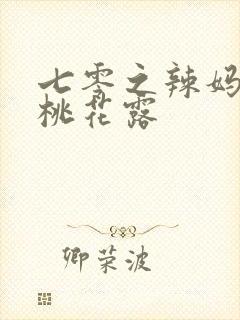 七零之辣妈
桃花露
卿荣波